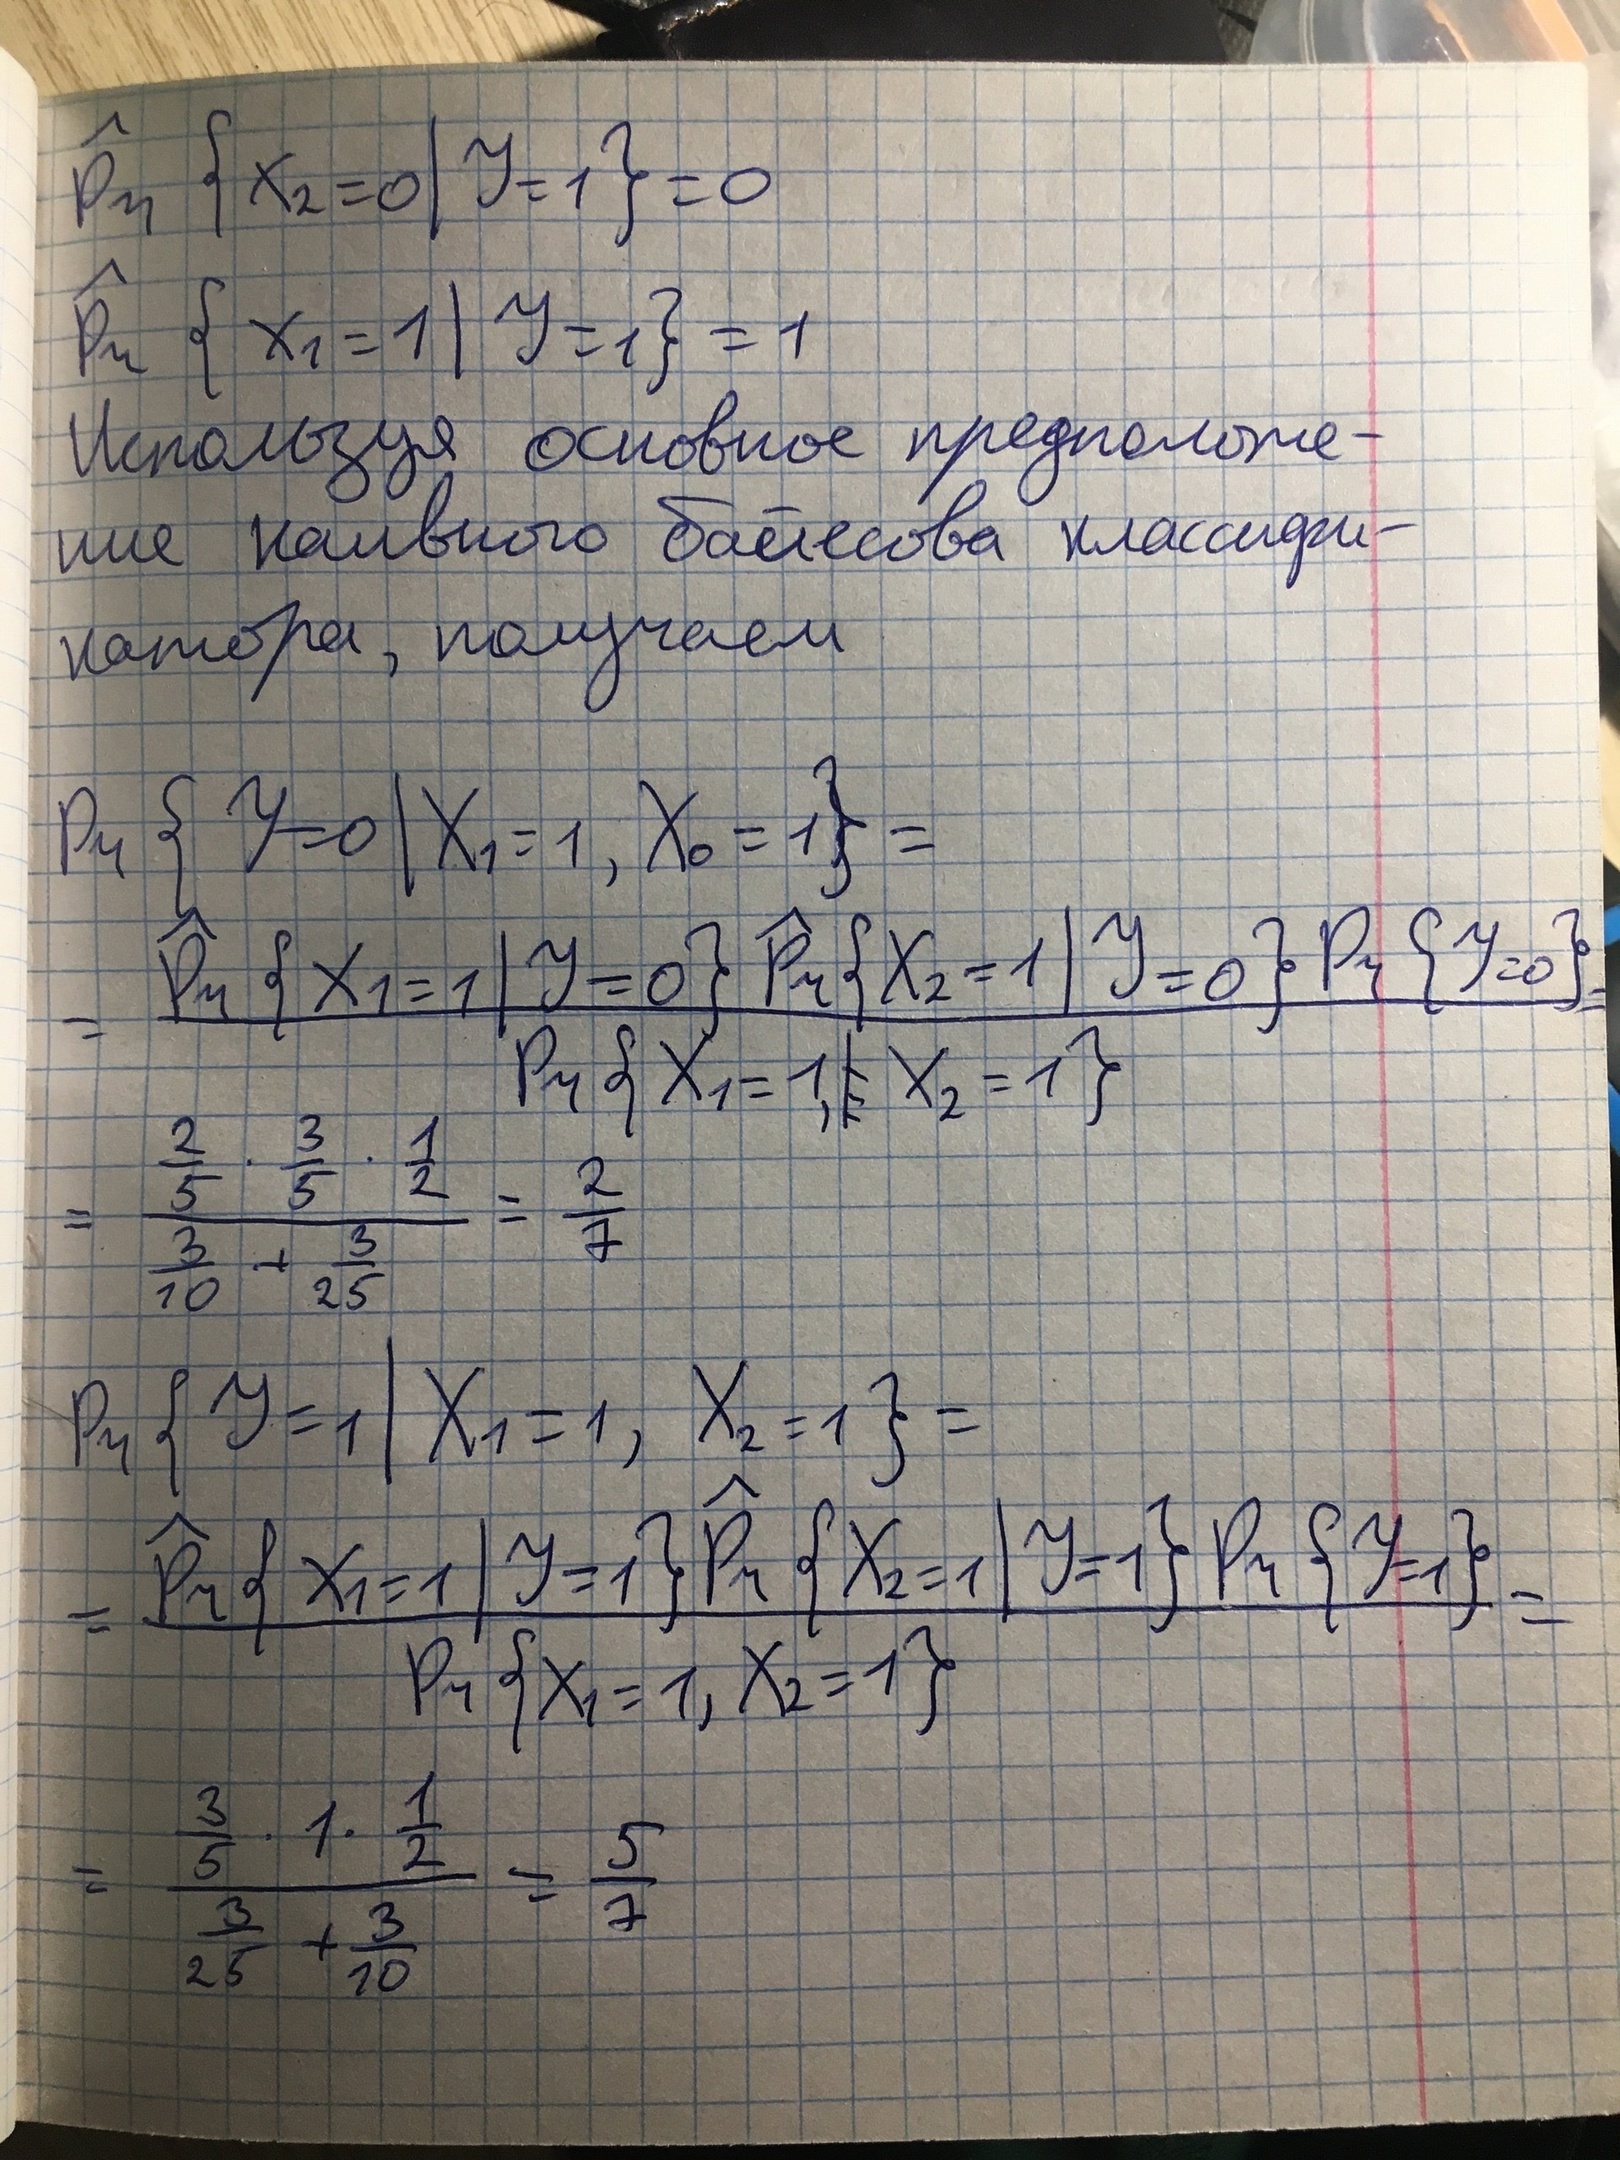 P̂r {X₂=0|Y=1}=0
P̂r {X₁=1|Y=1}=1
Используя основное предположе-
ние наивного байесова классифи-
катора, получаем
Pr {Y=0|X₁=1, X₀=1}=
= P̂r{X₁=1|Y=0} P̂r{X₂=1|Y=0} Pr{Y=0} =
Pr{X₁=1, X₂=1}
= 2/5 · 3/5 · 1/2 = 2/7
3/10 + 3/25
Pr{Y=1|X₁=1, X₂=1}=
= P̂r{X₁=1|Y=1} P̂r{X₂=1|Y=1} Pr{Y=1} =
Pr{X₁=1, X₂=1}
= 3/5 · 1 · 1/2 = 5/7
3/25 + 3/10